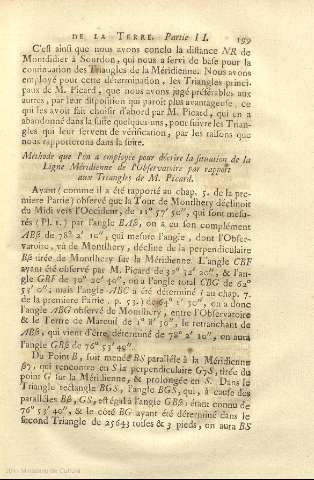 DE LA TERRE. Partie II. 199
C'est ainsi que nous avons conclu la distance NR de
Montdidier à Sourdon, qui nous a servi de base pour la
continuation des Triangles de la Méridienne. Nous avons
employé pour cette détermination, les Triangles princi-
paux de M. Picard, que nous avons jugé préférables aux
autres, par leur disposition qui paroît plus avantageuse, ce
qui les avoit fait choisir d'abord par M. Picard, qui en a
abandonné dans la suite quelques-uns, pour suivre les Trian-
gles qui leur servent de vérification, par les raisons que
nous rapporterons dans la suite.
Methode que l'on a employée pour décrire la situation de la
Ligne Méridienne de l'Observatoire par rapport
aux Triangles de M. Picard.
Ayant (comme il a été rapporté au chap. 5. de la pre-
miere Partie) observé que la Tour de Montlhery déclinoit
du Midi vers l'Occident, de 11° 57' 50", qui sont mesu-
rés (Pl. 1.) par l'angle BAβ, on a eu son complément
ABβ de 78° 2' 10", qui mesure l'angle, dont l'Obser-
vatoire, vû de Montlhery, décline de la perpendiculaire
Bβ tirée de Montlhery sur la Méridienne. L'angle CBF
ayant été observé par M. Picard de 32° 32' 20", & l'an-
gle GBF de 30° 20' 40", on a l'angle total CBG de 62°
53' 0"; mais l'angle ABC a été déterminé au chap. 7.
de la premiere Partie, p. 53.) de 64° 1' 30", on a donc
l'angle ABG observé de Montlhery, entre l'Observatoire
& le Tertre de Mareuil de 1° 8' 30", le retranchant de
ABβ, qui vient d'être déterminé de 78° 2' 10", on aura
l'angle GBβ de 76° 53' 40".
Du Point B, soit menée BS parallèle à la Méridienne
β7, qui rencontre en S la perpendiculaire G7S, tirée du
point G sur la Méridienne, & prolongée en S. Dans le
Triangle rectangle BGS, l'angle BGS, qui, à cause des
paralléles Bβ, GS, est égal à l'angle GBβ, étant connu de
76° 53' 40", & le côté BG ayant été déterminé dans le
second Triangle de 25643 toises & 3 pieds, on aura BS
2011 Ministerio de Cultura